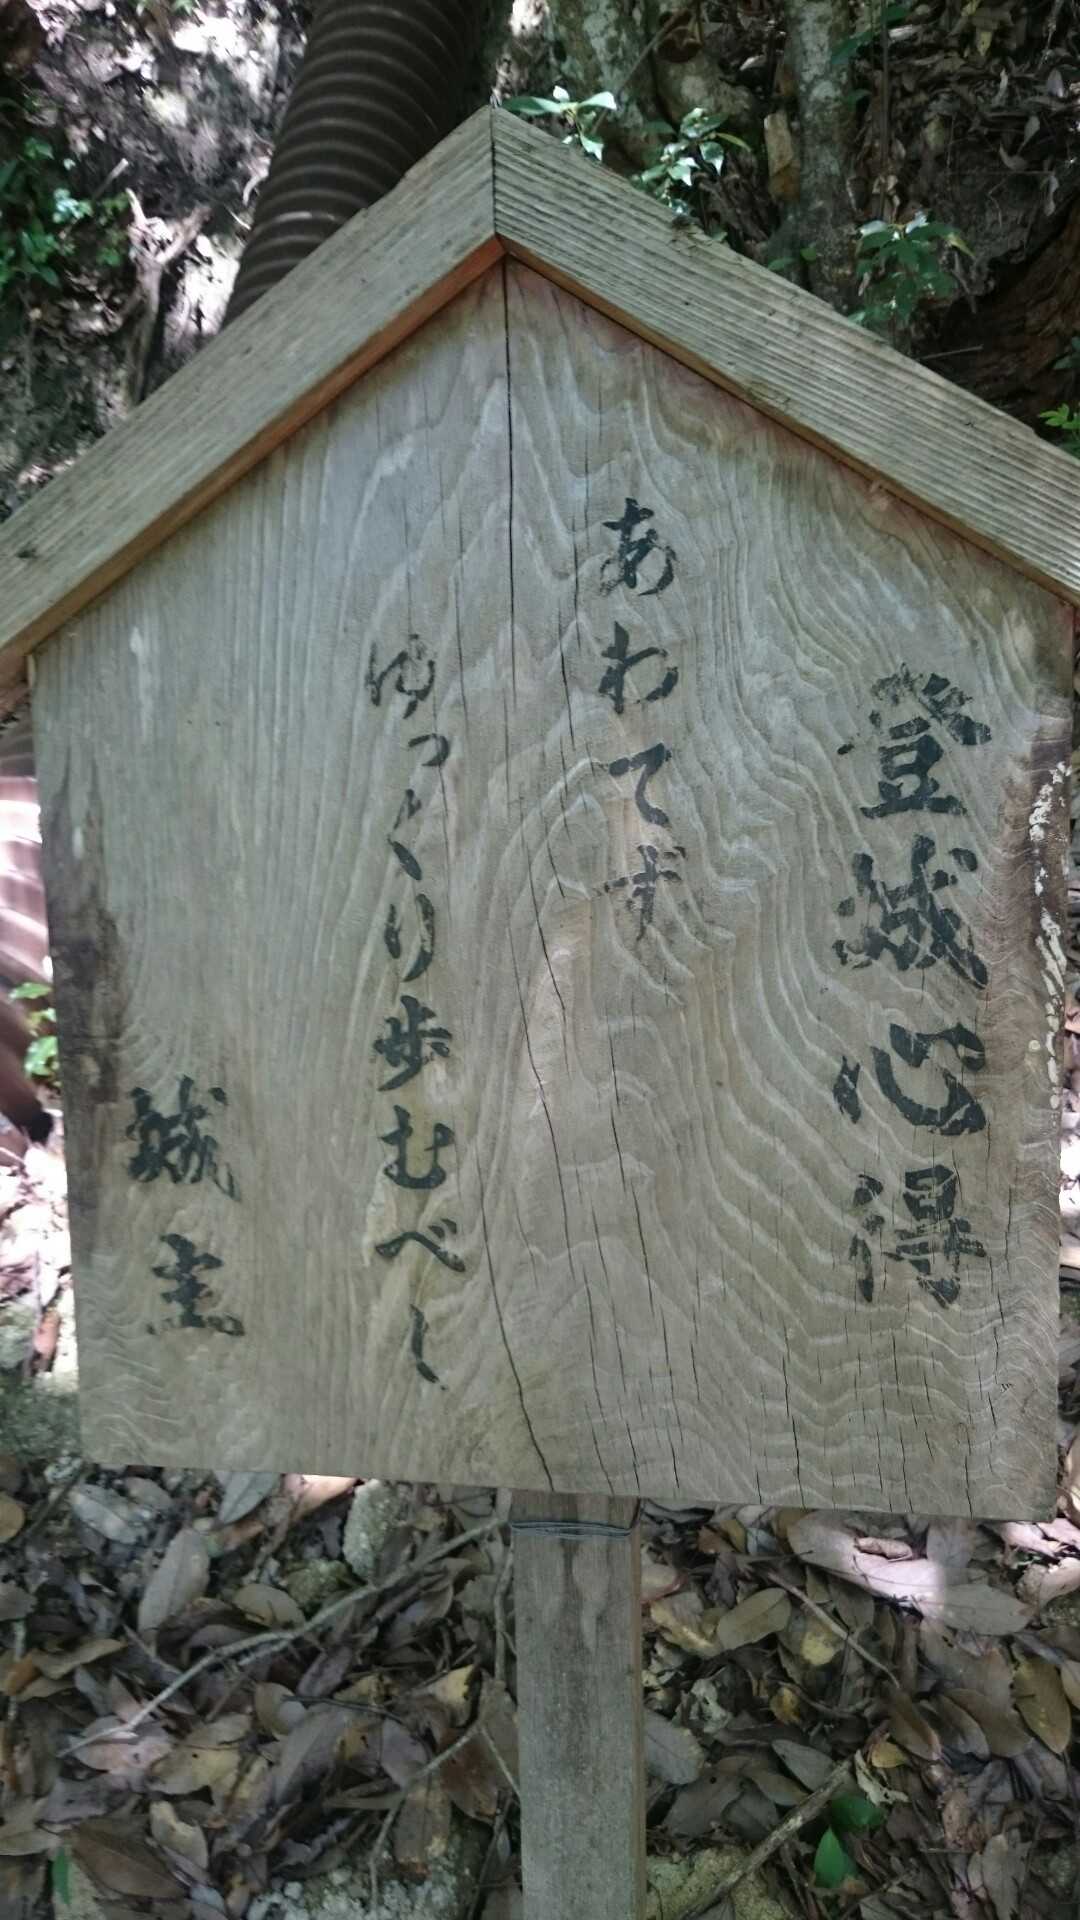 登城心得
あわてず
ゆっくり歩むべし
城主